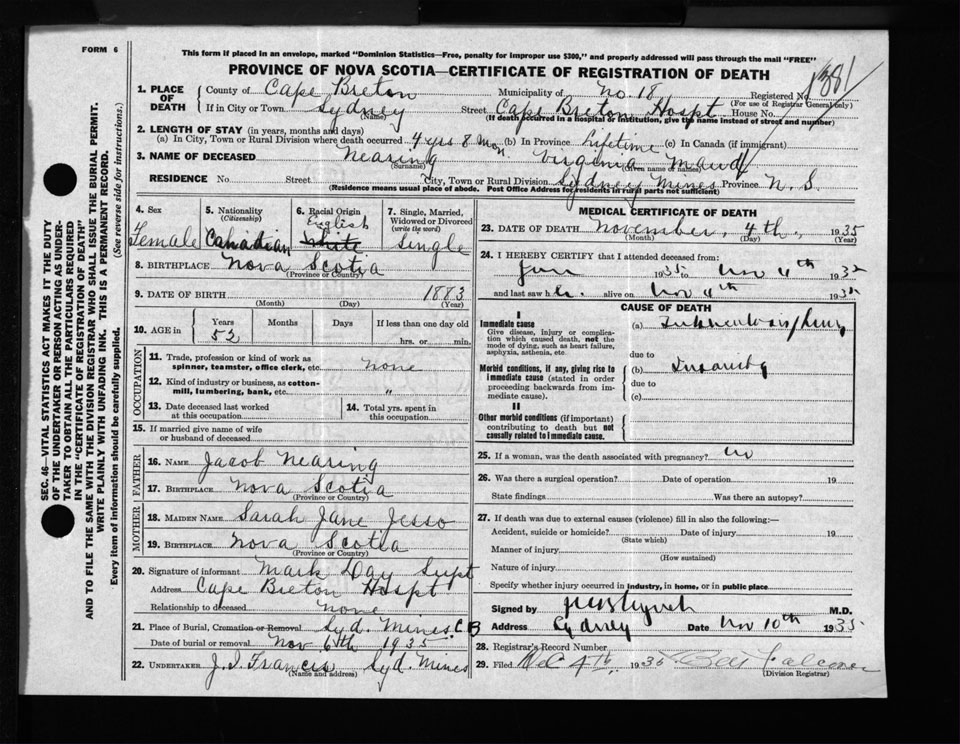 FORM 6
This form if placed in an envelope, marked "Dominion Statistics—Free, penalty for improper use $300," and properly addressed will pass through the mail "FREE"
PROVINCE OF NOVA SCOTIA—CERTIFICATE OF REGISTRATION OF DEATH
1381
1. PLACE OF DEATH
County of Cape Breton Municipality of No. 18 Registered No.
(For use of Registrar General only)
If in City or Town Sydney Street Cape Breton Hospt House No.
(Name) (If death occurred in a hospital or institution, give the name instead of street and number)
2. LENGTH OF STAY (in years, months and days)
(a) In City, Town or Rural Division where death occurred 4 yrs 8 Mon. (b) In Province Lifetime (c) In Canada (if immigrant)
3. NAME OF DECEASED Nearing Virginia Maud
(Surname) (Given name or names)
RESIDENCE No. Street City, Town or Rural Division Sydney Mines Province N. S.
(Residence means usual place of abode. Post Office Address for residents in rural parts not sufficient)
4. Sex 5. Nationality (Citizenship) 6. Racial Origin 7. Single, Married, Widowed or Divorced (write the word)
Female Canadian English White Single
8. BIRTHPLACE Nova Scotia
(Province or Country)
9. DATE OF BIRTH 1883
(Month) (Day) (Year)
10. AGE in Years Months Days If less than one day old
52 hrs. or min.
OCCUPATION
11. Trade, profession or kind of work as spinner, teamster, office clerk, etc. none
12. Kind of industry or business, as cotton-mill, lumbering, bank, etc. "
13. Date deceased last worked at this occupation
14. Total yrs. spent in this occupation
15. If married give name of wife or husband of deceased
FATHER
16. NAME Jacob Nearing
17. BIRTHPLACE Nova Scotia
(Province or Country)
MOTHER
18. MAIDEN NAME Sarah Jane Jesso
19. BIRTHPLACE Nova Scotia
(Province or Country)
20. Signature of informant Mark Day Supt
Address Cape Breton Hospt
Relationship to deceased none
21. Place of Burial, Cremation or Removal Syd. Mines C B
Date of burial or removal Nov 6th 1935
22. UNDERTAKER J. J. Francis Syd. Mines
(Name and address)
MEDICAL CERTIFICATE OF DEATH
23. DATE OF DEATH November, 4th, 1935
(Month) (Day) (Year)
24. I HEREBY CERTIFY that I attended deceased from:
1935 to Nov 4th 1935
and last saw h alive on Nov 4th 1935
CAUSE OF DEATH
I
Immediate cause
Give disease, injury or complication which caused death, not the mode of dying, such as heart failure, asphyxia, asthenia, etc.
(a)
due to
Morbid conditions, if any, giving rise to immediate cause (stated in order proceeding backwards from immediate cause).
(b) Insanity
due to
(c)
II
Other morbid conditions (if important) contributing to death but not causally related to immediate cause.
25. If a woman, was the death associated with pregnancy? no
26. Was there a surgical operation? Date of operation 19
State findings Was there an autopsy?
27. If death was due to external causes (violence) fill in also the following:—
Accident, suicide or homicide? Date of injury 19
(State which)
Manner of injury
(How sustained)
Nature of injury
Specify whether injury occurred in industry, in home, or in public place
Signed by M.D.
Address Sydney Date Nov 10th 1935
28. Registrar's Record Number
29. Filed Dec 4th 1935 Falconer
(Division Registrar)
SEC. 46—VITAL STATISTICS ACT MAKES IT THE DUTY
OF THE UNDERTAKER OR PERSON ACTING AS UNDER-
TAKER TO OBTAIN ALL THE PARTICULARS REQUIRED
IN THE "CERTIFICATE OF REGISTRATION OF DEATH"
AND TO FILE THE SAME WITH THE DIVISION REGISTRAR WHO SHALL ISSUE THE BURIAL PERMIT.
WRITE PLAINLY WITH UNFADING INK. THIS IS A PERMANENT RECORD.
Every item of information should be carefully supplied. (See reverse side for instructions.)